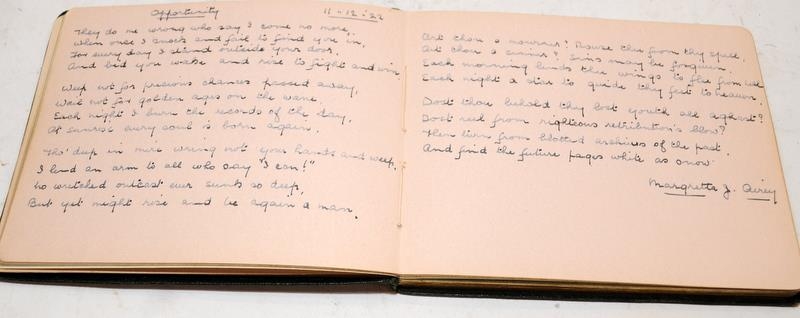 Opportunity 11-12-'22
They do me wrong who say I come no more,
When once I knock and fail to find you in,
For every day I stand outside your door,
And bid you wake and rise to fight and win.
Weep not for precious chances passed away,
Wait not for golden ages on the wane,
Each night I burn the records of the day,
At sunrise every soul is born again.
Tho' deep in mire wring not your hands and weep,
I lend an arm to all who say "I can!"
No wretched outcast ever sunk so deep,
But yet might rise and be again a man.
Art thou a mourner? Rouse thee from thy spell,
Art thou a sinner? Sins may be forgiven.
Each morning lends thee wings to flee from hell
Each night a star to guide thy feet to heaven.
Dost thou behold thy lost youth all aghast?
Dost reel from righteous retribution's blow?
Then turn from blotted archives of the past,
And find the future pages white as snow.
Margretta J.